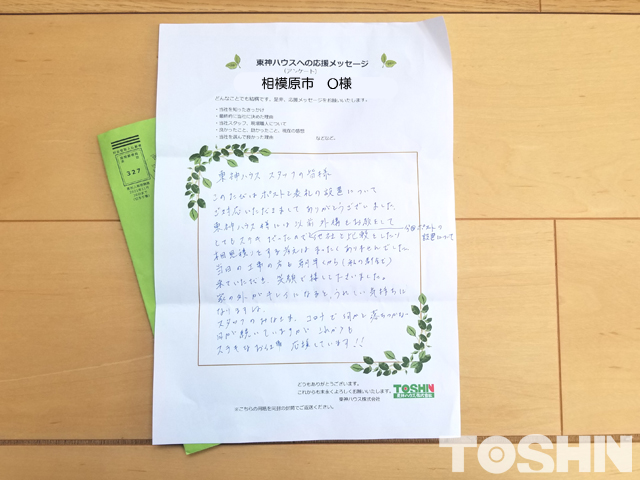 東神ハウスへの応援メッセージ
(アンケート)
相模原市 O様
どんなことでも結構です。是非、応援メッセージをお願いいたします。
・当社を知ったきっかけ
・最終的に当社に決めた理由
・当社スタッフ、現場職人について
・良かったこと、困ったこと、現在の感想
・当社を選んで良かった理由 などなど。
東神ハウス スタッフの皆様
このたびはポストと表札の設置について
ご対応いただきまして ありがとうございました。
東神ハウス様には以前 外構もお願いして
とてもステキだったので 他社と比較したり
今回ポストの
設置について
相見積りとする考えは まったくありませんでした。
当日の工事の方も
来ていただき、笑顔で接してくださいました。
家の外がキレイになると、うれしい気持ちに
なりますね。
スタッフのみなさま、コロナで何かと落ちつかない
日が続いていますが これからも
ステキなお仕事 応援しています!!
どうもありがとうございます。
これからも末永くよろしくお願いいたします。
東神ハウス株式会社
TOSHIN
東神ハウス株式会社
※こちらの用紙を元封の封筒でご返送ください。
327
TOSHIN